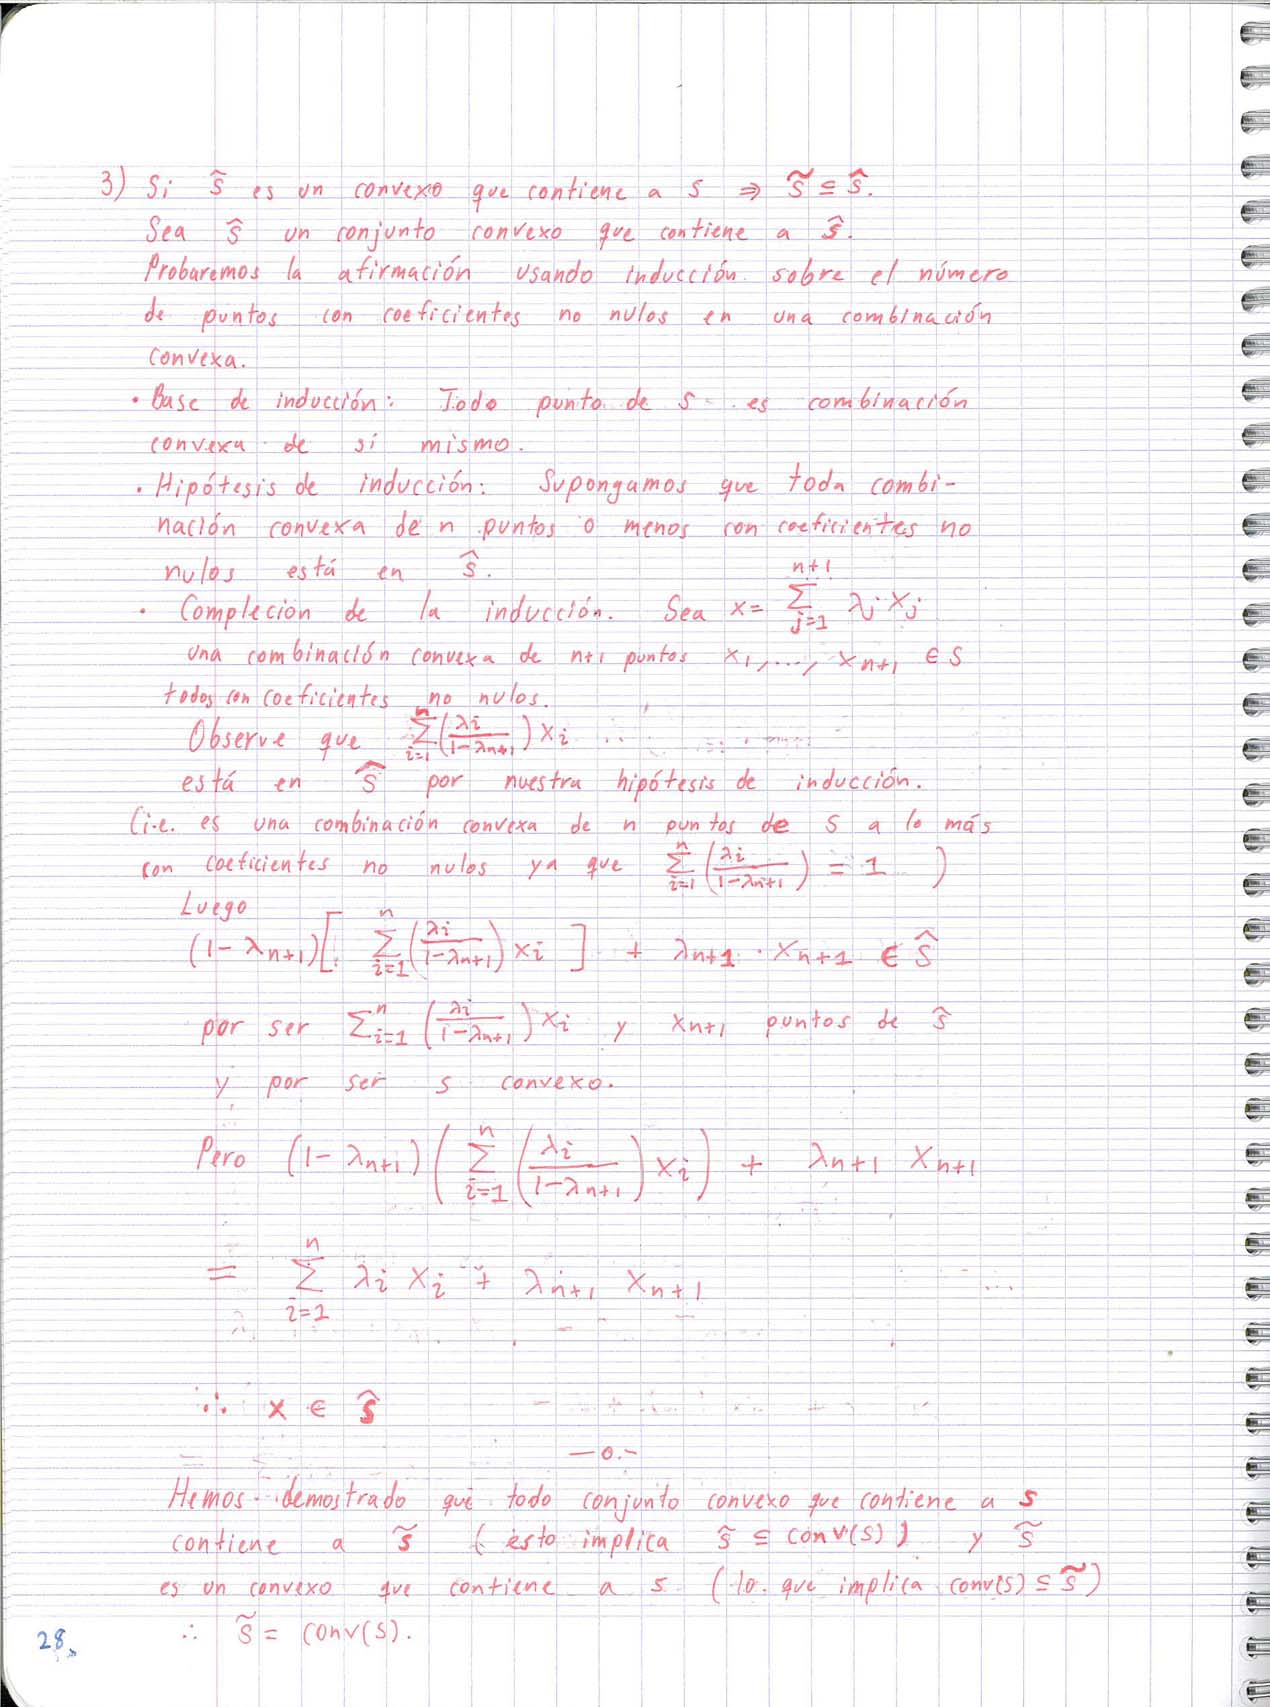 3) Si ŝ es un convexo que contiene a s ⇒ s̃ ⊆ ŝ.
Sea ŝ un conjunto convexo que contiene a ŝ.
Probaremos la afirmación usando inducción sobre el número
de puntos con coeficientes no nulos en una combinación
convexa.
• Base de inducción: Todo punto de s es combinación
convexa de sí mismo.
• Hipótesis de inducción: Supongamos que toda combi-
nación convexa de n puntos o menos con coeficientes no
nulos está en ŝ.
• Compleción de la inducción. Sea x = ∑_{j=1}^{n+1} λj xj
una combinación convexa de n+1 puntos x₁, ..., x_{n+1} ∈ S
todos con coeficientes no nulos.
Observe que ∑_{i=1}^{n} (λi/(1-λ_{n+1})) xi
está en ŝ por nuestra hipótesis de inducción.
(i.e. es una combinación convexa de n puntos de s a lo más
con coeficientes no nulos ya que ∑_{i=1}^{n} (λi/(1-λ_{n+1})) = 1 )
Luego
(1-λ_{n+1}) [ ∑_{i=1}^{n} (λi/(1-λ_{n+1})) xi ] + λ_{n+1} · x_{n+1} ∈ ŝ
por ser ∑_{i=1}^{n} (λi/(1-λ_{n+1})) xi y x_{n+1} puntos de ŝ
y por ser s convexo.
Pero (1-λ_{n+1}) ( ∑_{i=1}^{n} (λi/(1-λ_{n+1})) xi ) + λ_{n+1} x_{n+1}
= ∑_{i=1}^{n} λi xi + λ_{n+1} x_{n+1}
∴ x ∈ ŝ
—o.-
Hemos demostrado que todo conjunto convexo que contiene a s
contiene a s̃ (esto implica s̃ ⊆ conv(s)) y s̃
es un convexo que contiene a s (lo que implica conv(s) ⊆ s̃)
∴ s̃ = conv(s).
28.